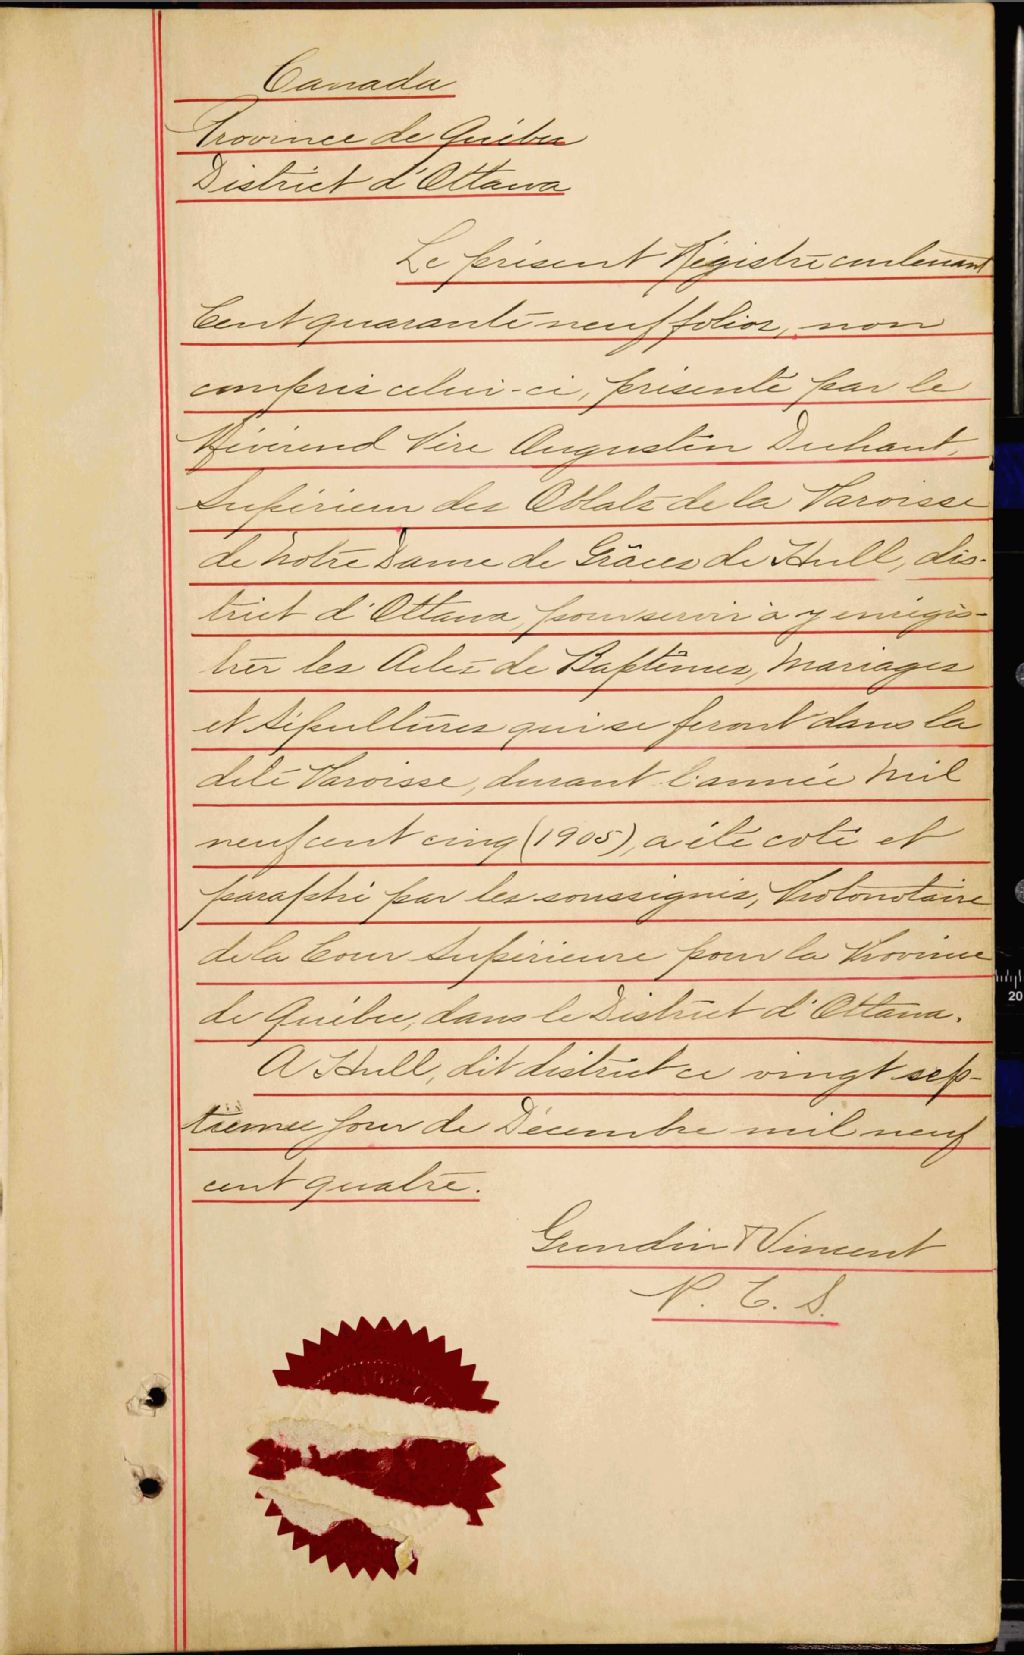 Canada
Province de Québec
District d'Ottawa
Le présent Régistre contenant
Cent quarante neuf folios, non
compris celui-ci, présenté par le
Révérend Père Augustin Duhaut,
Supérieur des Oblats de la Paroisse
de Notre Dame de Grâces de Hull, dis-
trict d'Ottawa, pour servir à y enrégis-
trer les Actes de Baptêmes, Mariages
et Sépultures qui se feront dans la
dite Paroisse, durant l'année Mil
neuf cent cinq (1905), a été coté et
paraphé par les soussignés, Protonotaire
de la Cour Supérieure pour la Province
de Québec, dans le District d'Ottawa.
A Hull, dit district ce vingt sep-
tième jour de Décembre mil neuf
cent quatre.
Vincent
P. C. S.
20